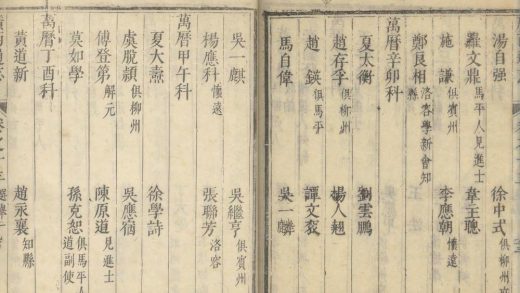 湯自强 徐中式 俱柳州
羅文鼎 馬平人見進士 韋王聰
施謙 俱賓州 李應朝 懷遠
鄭良相 洛容學新會知縣
萬曆辛卯科
夏太衡 劉雲鵬
趙存孚 俱柳州 楊人翹
趙鍈 俱馬平 譚文
馬自偉 吳一麟
吳一麒 吳繼亨 俱賓州
楊應科 懷遠 張聯芳 洛容
萬曆甲午科
夏大 徐學詩
虞脫穎 俱柳州 吳應
傅登第 解元 陳原道 見進士
莫如學 孫克恕 俱馬平人道副使
萬曆丁酉科
黃道新 趙永 知縣